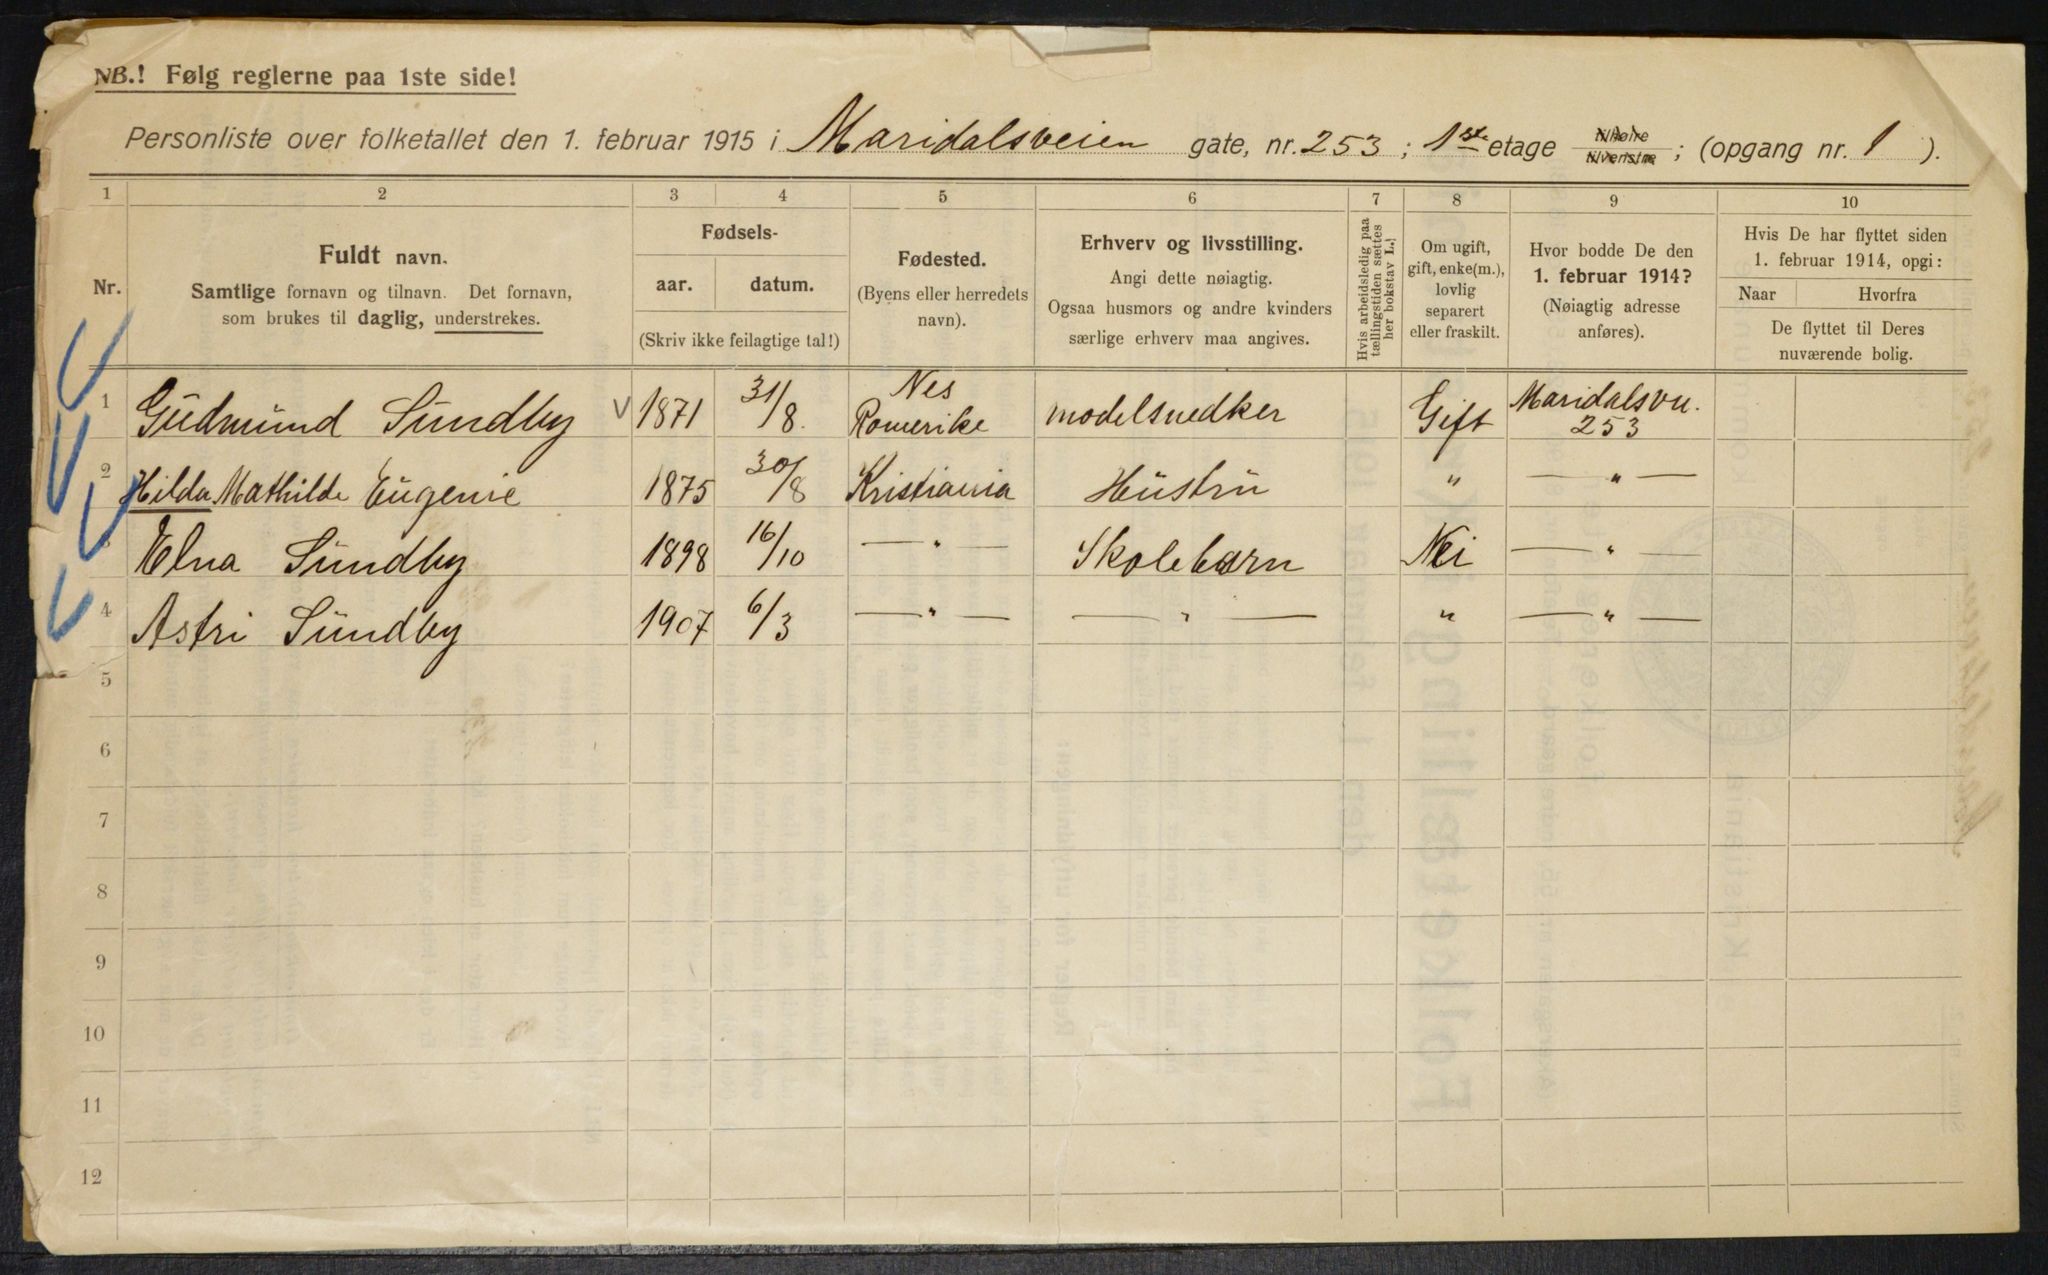 NB.! Følg reglerne paa 1ste side!
Personliste over folketallet den 1. februar 1915 i Maridalsveien gate, nr. 253 ; 1ste etage tilhøire tilvenstre ; (opgang nr. 1 ).
1 2 3 4 5 6 7 8 9 10
Nr.
Fuldt navn.
Samtlige fornavn og tilnavn. Det fornavn,
som brukes til daglig, understrekes.
Fødsels-
aar. datum.
(Skriv ikke feilagtige tal!)
Fødested.
(Byens eller herredets
navn).
Erhverv og livsstilling.
Angi dette nøiagtig.
Ogsaa husmors og andre kvinders
særlige erhverv maa angives.
Hvis arbeidsledig paa
tællingstiden sættes
her bokstav L.!
Om ugift,
gift, enke(m.),
lovlig
separert
eller fraskilt.
Hvor bodde De den
1. februar 1914?
(Nøiagtig adresse
anføres).
Hvis De har flyttet siden
1. februar 1914, opgi:
Naar Hvorfra
De flyttet til Deres
nuværende bolig.
1 Gudmund Sundby 1871 31/8. Nes Romerike modelsnedker Gift Maridalsvn. 253
2 Hilda Mathilde Eugenie 1875 30/8 Kristiania Hustru " — " —
3 Elna Sundby 1898 16/10 — " — Skolebarn Nei — " —
4 Astri Sundby 1907 6/3 — " — — " — " — " —
5
6
7
8
9
10
11
12